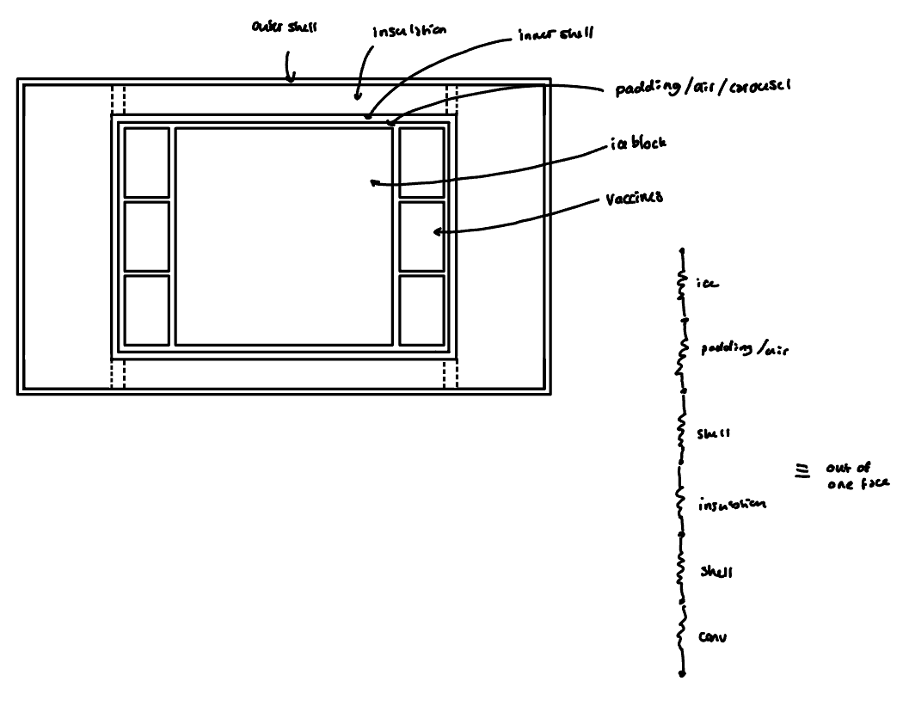 outer shell
insulation
inner shell
padding/air/carousel
ice block
vaccines
ice
padding/air
shell
insulation
shell
conv
≡ out of
one face